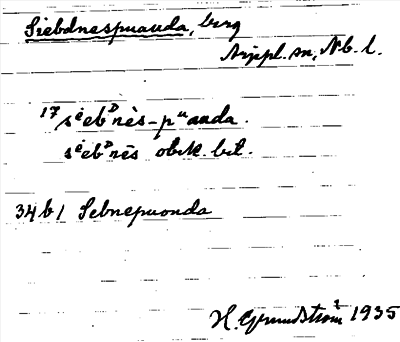 Siebdnespuanda, berg
Arjepl. sn, Nb. l.
17 sėebᴰnès-pᵘanda.
sėebᴰnēs obek. bet.
34 b 1 Sebnepuonda
H. Grundström 1935